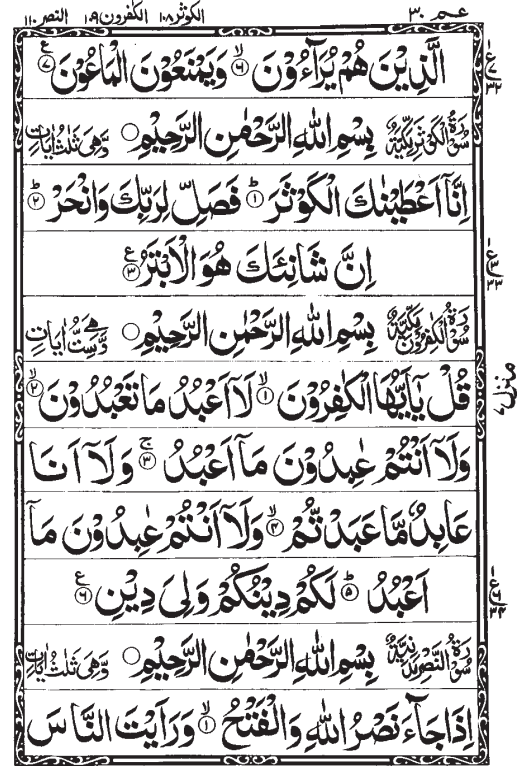 عم ٣٠ الكوثر ١٠٨ الكفرون ١٠٩ النصر ١١٠
الَّذِيْنَ هُمْ يُرَآءُوْنَ ۙ﴿۶﴾ وَيَمْنَعُوْنَ الْمَاعُوْنَ ﴿۷﴾ ع
سُوْرَةُ الْكَوْثَرِ مَكِّيَّةٌ بِسْمِ اللهِ الرَّحْمٰنِ الرَّحِيْمِ ۝ وَّهِیَ ثَلٰثُ اٰيَاتٍ
اِنَّآ اَعْطَيْنٰكَ الْكَوْثَرَ ؕ﴿۱﴾ فَصَلِّ لِرَبِّكَ وَانْحَرْ ؕ﴿۲﴾
اِنَّ شَانِئَكَ هُوَ الْاَبْتَرُ ﴿۳﴾ ع
سُوْرَةُ الْكٰفِرُوْنَ مَكِّيَّةٌ بِسْمِ اللهِ الرَّحْمٰنِ الرَّحِيْمِ ۝ وَّهِیَ سِتُّ اٰيَاتٍ
قُلْ يٰۤاَيُّهَا الْكٰفِرُوْنَ ۙ﴿۱﴾ لَآ اَعْبُدُ مَا تَعْبُدُوْنَ ۙ﴿۲﴾
وَلَآ اَنْتُمْ عٰبِدُوْنَ مَآ اَعْبُدُ ۚ﴿۳﴾ وَلَآ اَنَا
عَابِدٌ مَّا عَبَدْتُّمْ ۙ﴿۴﴾ وَلَآ اَنْتُمْ عٰبِدُوْنَ مَآ
اَعْبُدُ ؕ﴿۵﴾ لَكُمْ دِيْنُكُمْ وَلِیَ دِيْنِ ﴿۶﴾ ع
سُوْرَةُ النَّصْرِ مَدَنِيَّةٌ بِسْمِ اللهِ الرَّحْمٰنِ الرَّحِيْمِ ۝ وَّهِیَ ثَلٰثُ اٰيَاتٍ
اِذَا جَآءَ نَصْرُ اللهِ وَالْفَتْحُ ۙ﴿۱﴾ وَرَاَيْتَ النَّاسَ
ع ۷ ۳۲
ع ۳ ۳۳
منزل ۷
ع ۶ ۳۴